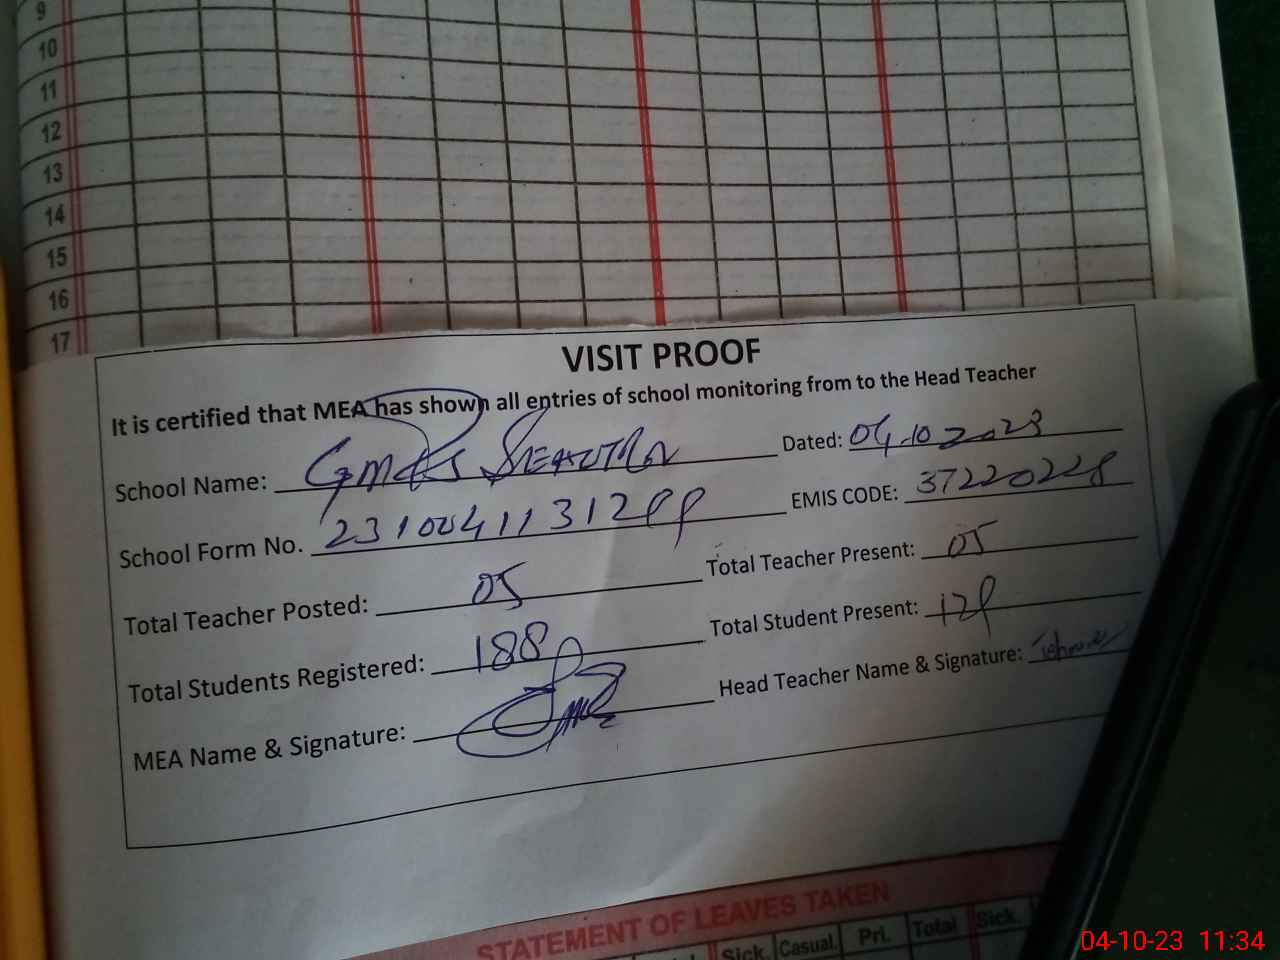 9
10
11
12
13
14
15
16
17
VISIT PROOF
It is certified that MEA has shown all entries of school monitoring from to the Head Teacher
School Name: Dated: 04.10.2023
School Form No. EMIS CODE: 37220228
Total Teacher Posted: 05 Total Teacher Present: 05
Total Students Registered: 188 Total Student Present:
MEA Name & Signature: Head Teacher Name & Signature:
STATEMENT OF LEAVES TAKEN
Sick. Casual. Pri. Total Sick.
04-10-23 11:34